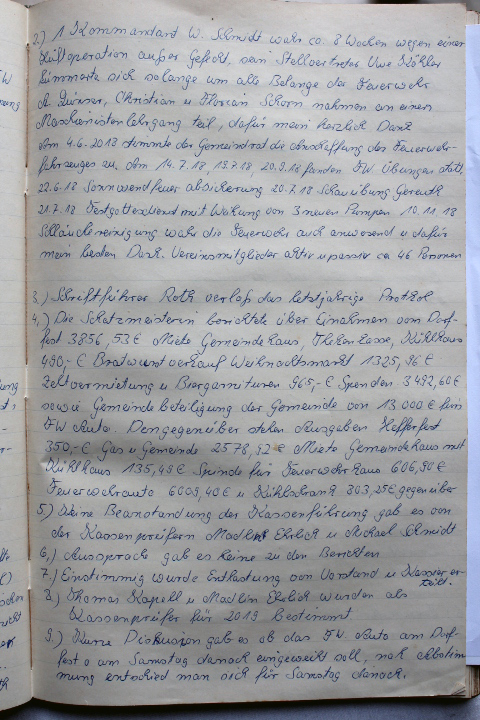 2.) 1 Kommandant W. Schmidt wahr ca. 8 Wochen wegen einer
Hüftoperation außer Gefecht, sein Stellvertreter Uwe Köhler
kümmerte sich solange um alle Belange der Feuerwehr
Christian u Florian Schorn nahmen an einen
Maschinistenlehrgang teil, dafür mein herzlich Dank
Am 4.6.2018 stimmte der Gemeindrat die Anschaffung des Feuerwehr-
fahrzeuges zu. Am 14.7.18, 19.7.18, 20.9.18 fanden FW Übungen statt
22.6.18 Sonnwendfeuer absicherung 20.7.18 Schauübung Gereuth
21.7.18 Festgottesdienst mit Weihung von 3 neuen Pumpen 10.11.18
Schläuchereinigung wahr die Feuerwehr auch anwesend u dafür
mein besten Dank. Vereinsmitglieder aktiv u passiv ca 46 Personen
3.) Schriftführer Roth verlaß das letztjährige Protokol
4.) Die Schatzmeisterin berichtete über Einahmen vom Dorf-
fest 3856,53€ Miete Gemeindehaus, Theke, Kühlhaus
490,-€ Bratwurstverkauf Weihnachtsmarkt 1325,96€
Zeltvermietung u Biergarnituren 965,-€ Spenden 3492,60€
sowie Gemeindebeteiligung der Gemeinde von 13 000€ fürs
FW Auto. Demgegenüber stehen Ausgaben Helferfest
350,-€ Gas u Gemeinde 2578,92€ Miete Gemeindehaus mit
Kühlhaus 135,49€ Spinde für Feuerwehrhaus 606,90€
Feuerwehrauto 6009,40€ u Kühlschrank 303,25€ gegenüber
5.) Keine Beanstandung der Kassenführung gab es von
der Kassenprüfern Madlin Ehrlich u Michael Schmidt
6.) Aussprache gab es keine zu den Berichten
7.) Einstimmig wurde Entlastung von Vorstand u Kassier er-
teilt.
8.) Thomas Kapell u Madlin Ehrlich wurden als
Kassenprüfer für 2019 bestimmt
9.) Kurze Diskusion gab es ob das FW Auto am Dorf-
fest o am Samstag danach eingeweiht soll, nach Abstim
mung entschied man sich für Samstag danach.